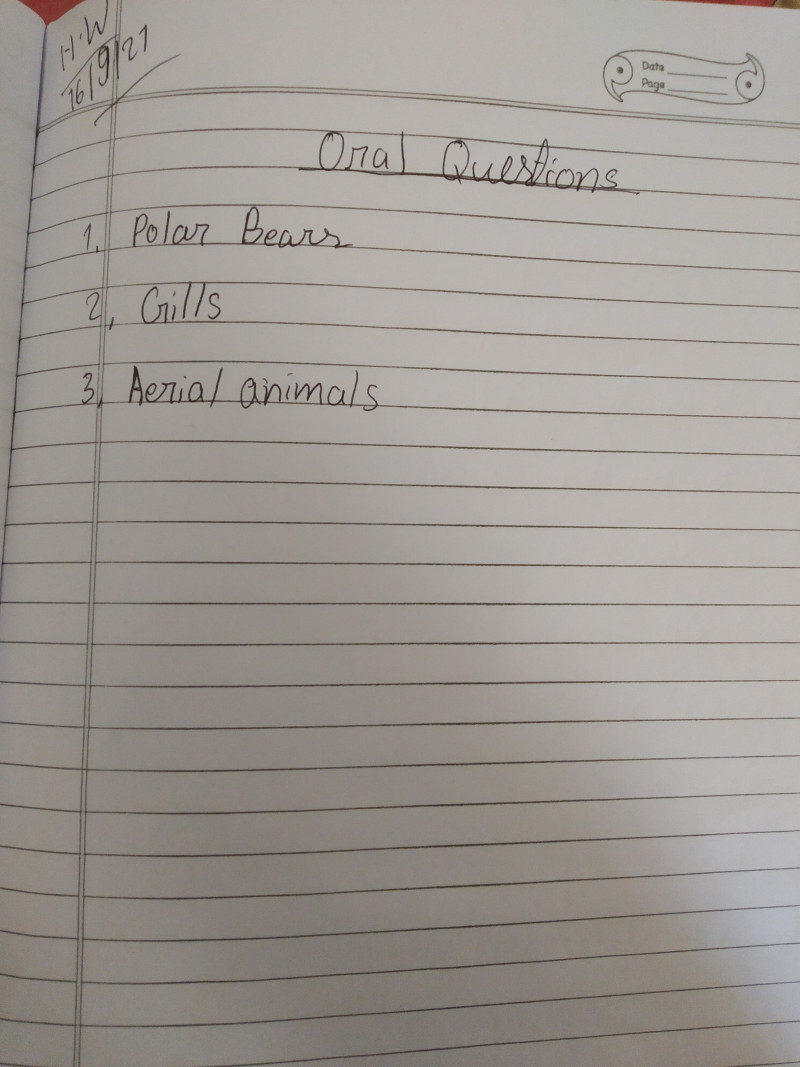 H.W
16/9/21
Date
Page
Oral Questions
1. Polar Bears
2. Gills
3. Aerial animals